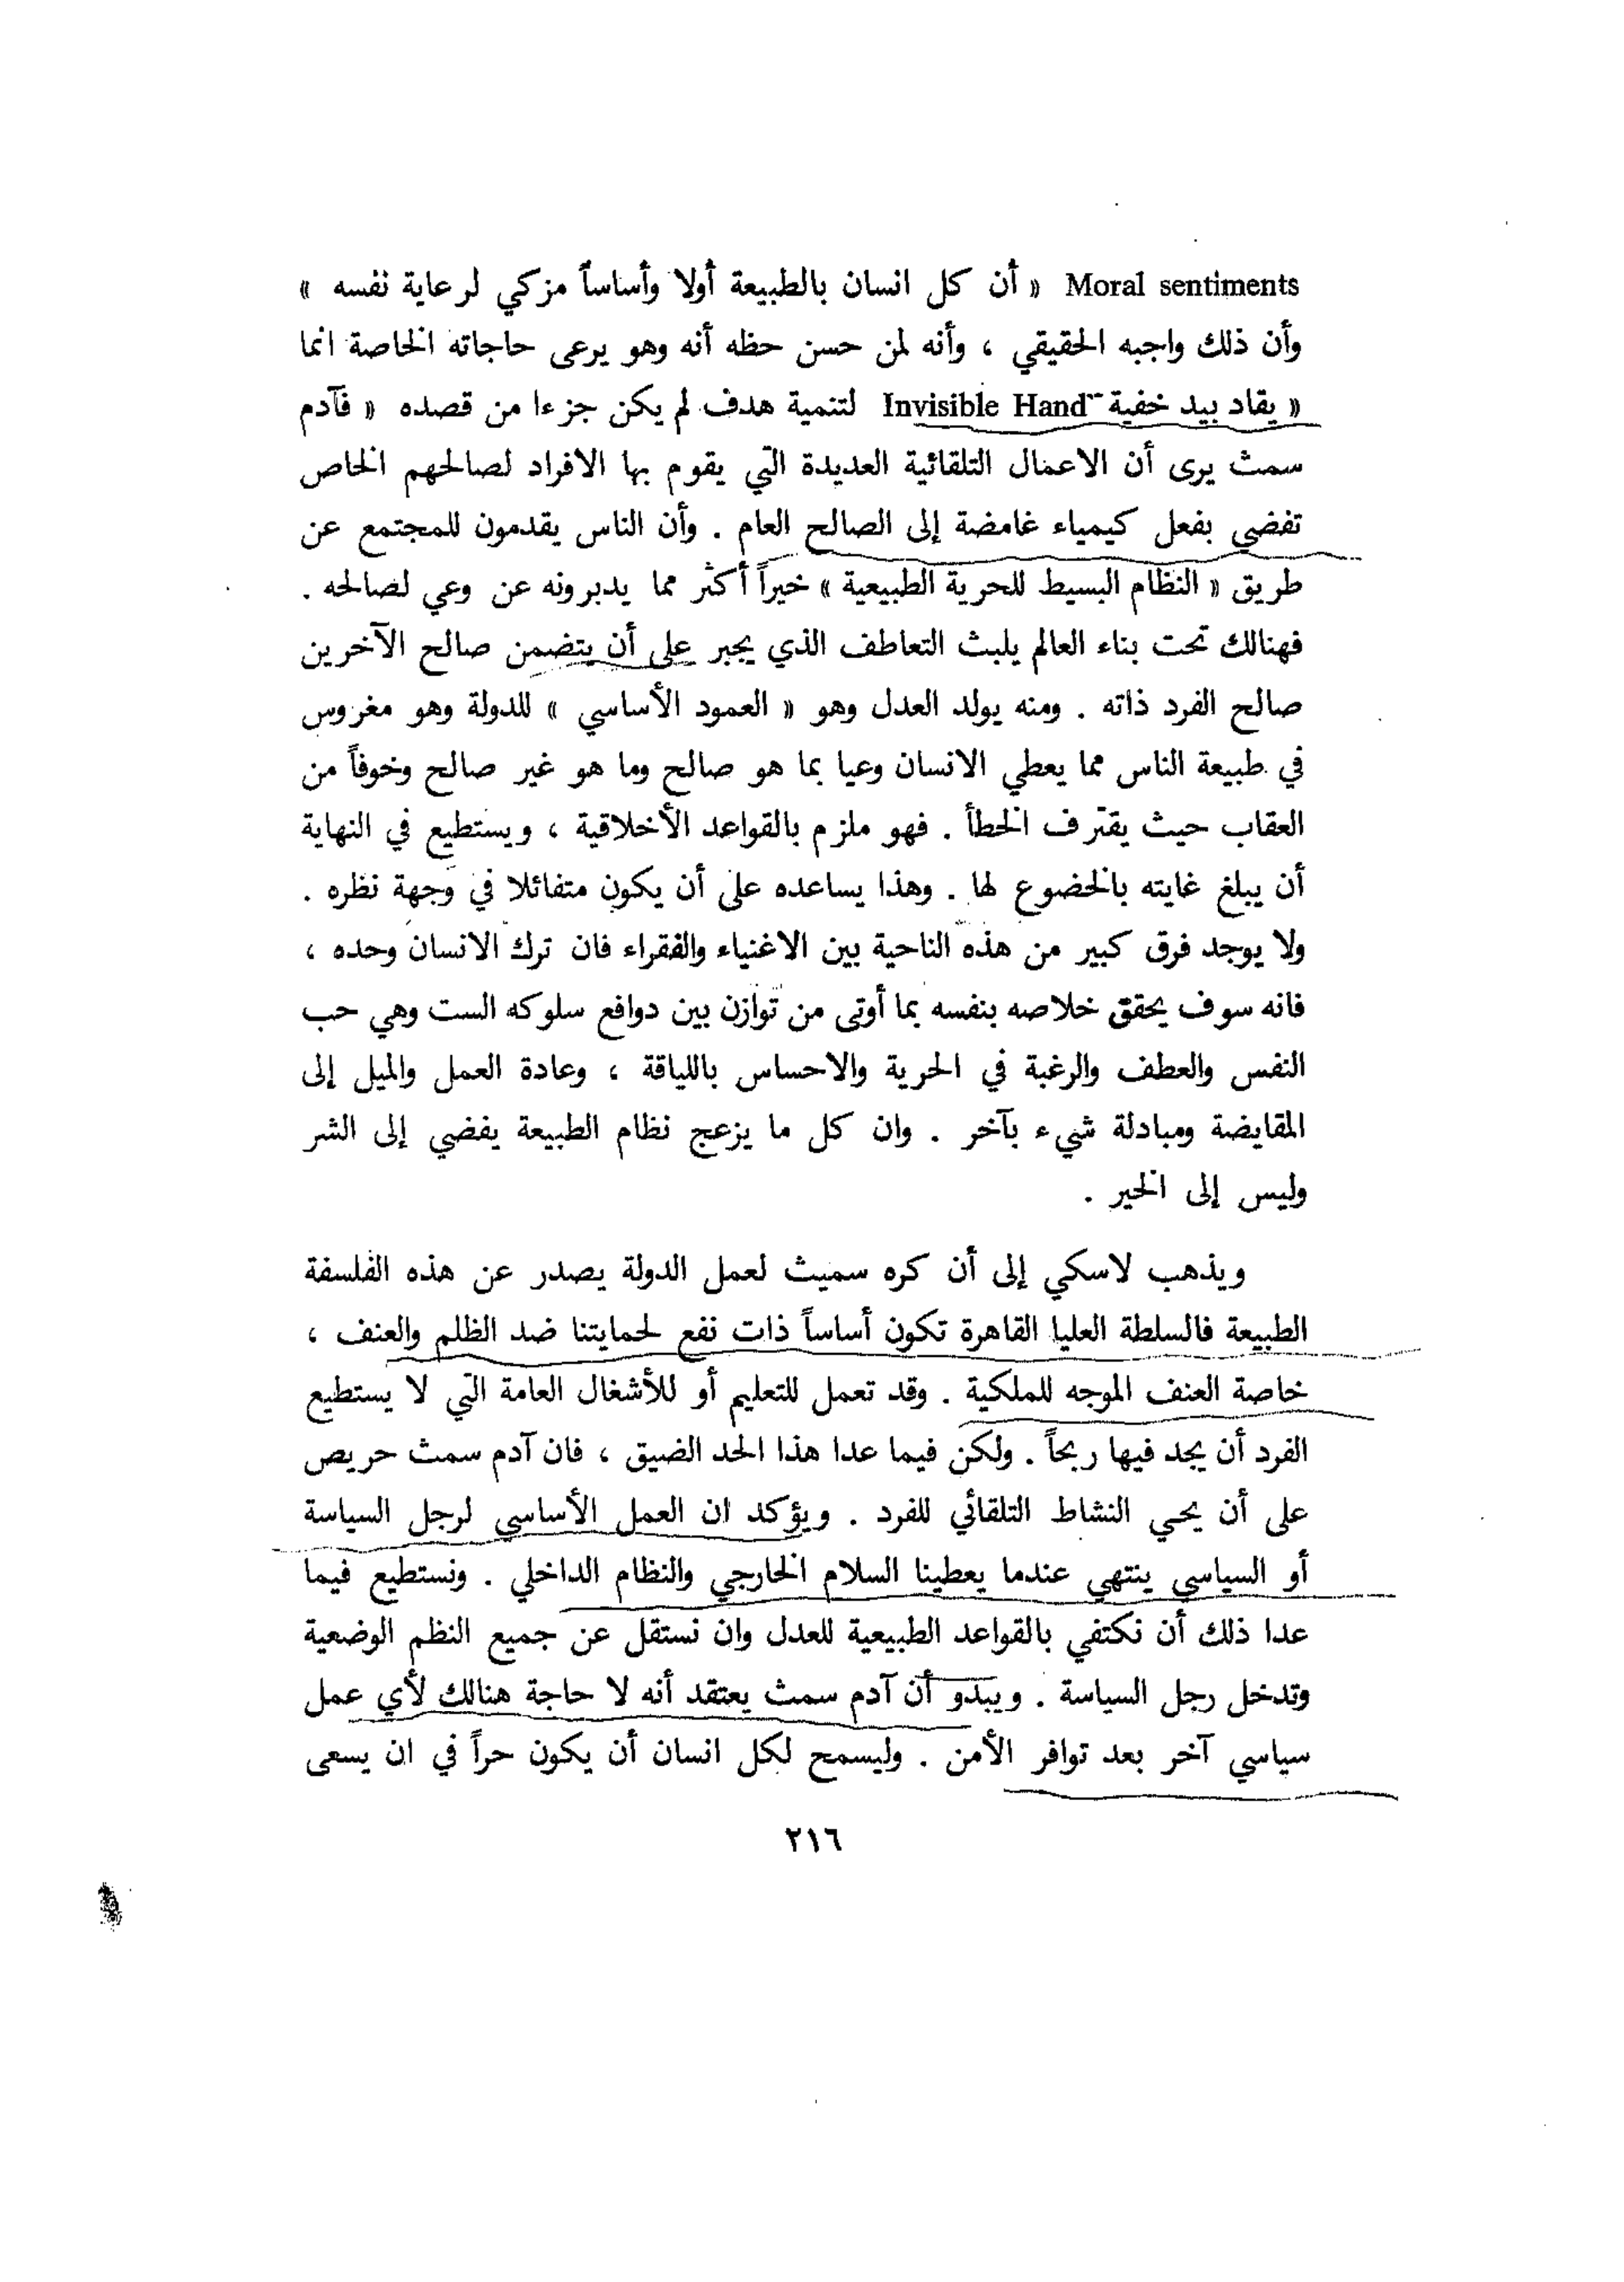 Moral sentiments « أن كل انسان بالطبيعة أولا وأساساً مزكي لرعاية نفسه »
وأن ذلك واجبه الحقيقي ، وأنه لمن حسن حظه أنه وهو يرعى حاجاته الخاصة انما
« يقاد بيد خفية Invisible Hand لتنمية هدف لم يكن جزءا من قصده « فآدم
سمث يرى أن الاعمال التلقائية العديدة التي يقوم بها الافراد لصالحهم الخاص
تفضي بفعل كيمياء غامضة إلى الصالح العام . وأن الناس يقدمون للمجتمع عن
طريق « النظام البسيط للحرية الطبيعية » خيراً أكثر مما يدبرونه عن وعي لصالحه .
فهنالك تحت بناء العالم يلبث التعاطف الذي يجبر على أن يتضمن صالح الآخرين
صالح الفرد ذاته . ومنه يولد العدل وهو « العمود الأساسي » للدولة وهو مغروس
في طبيعة الناس مما يعطي الانسان وعيا بما هو صالح وما هو غير صالح وخوفاً من
العقاب حيث يقترف الخطأ . فهو ملزم بالقواعد الأخلاقية ، ويستطيع في النهاية
أن يبلغ غايته بالخضوع لها . وهذا يساعده على أن يكون متفائلا في وجهة نظره .
ولا يوجد فرق كبير من هذه الناحية بين الاغنياء والفقراء فان ترك الانسان وحده ،
فانه سوف يحقق خلاصه بنفسه بما أوتى من توازن بين دوافع سلوكه الست وهي حب
النفس والعطف والرغبة في الحرية والاحساس باللياقة ، وعادة العمل والميل إلى
المقايضة ومبادلة شيء بآخر . وان كل ما يزعج نظام الطبيعة يفضي إلى الشر
وليس إلى الخير .
ويذهب لاسكي إلى أن كره سميث لعمل الدولة يصدر عن هذه الفلسفة
الطبيعة فالسلطة العليا القاهرة تكون أساساً ذات نفع لحمايتنا ضد الظلم والعنف ،
خاصة العنف الموجه للملكية . وقد تعمل للتعليم أو للأشغال العامة التي لا يستطيع
الفرد أن يجد فيها ربحاً . ولكن فيما عدا هذا الحد الضيق ، فان آدم سمث حريص
على أن يحي النشاط التلقائي للفرد . ويؤكد ان العمل الأساسي لرجل السياسة
أو السياسي ينتهي عندما يعطينا السلام الخارجي والنظام الداخلي . ونستطيع فيما
عدا ذلك أن نكتفي بالقواعد الطبيعية للعدل وان نستقل عن جميع النظم الوضعية
وتدخل رجل السياسة . ويبدو أن آدم سمث يعتقد أنه لا حاجة هنالك لأي عمل
سياسي آخر بعد توافر الأمن . وليسمح لكل انسان أن يكون حراً في ان يسعى
٢١٦